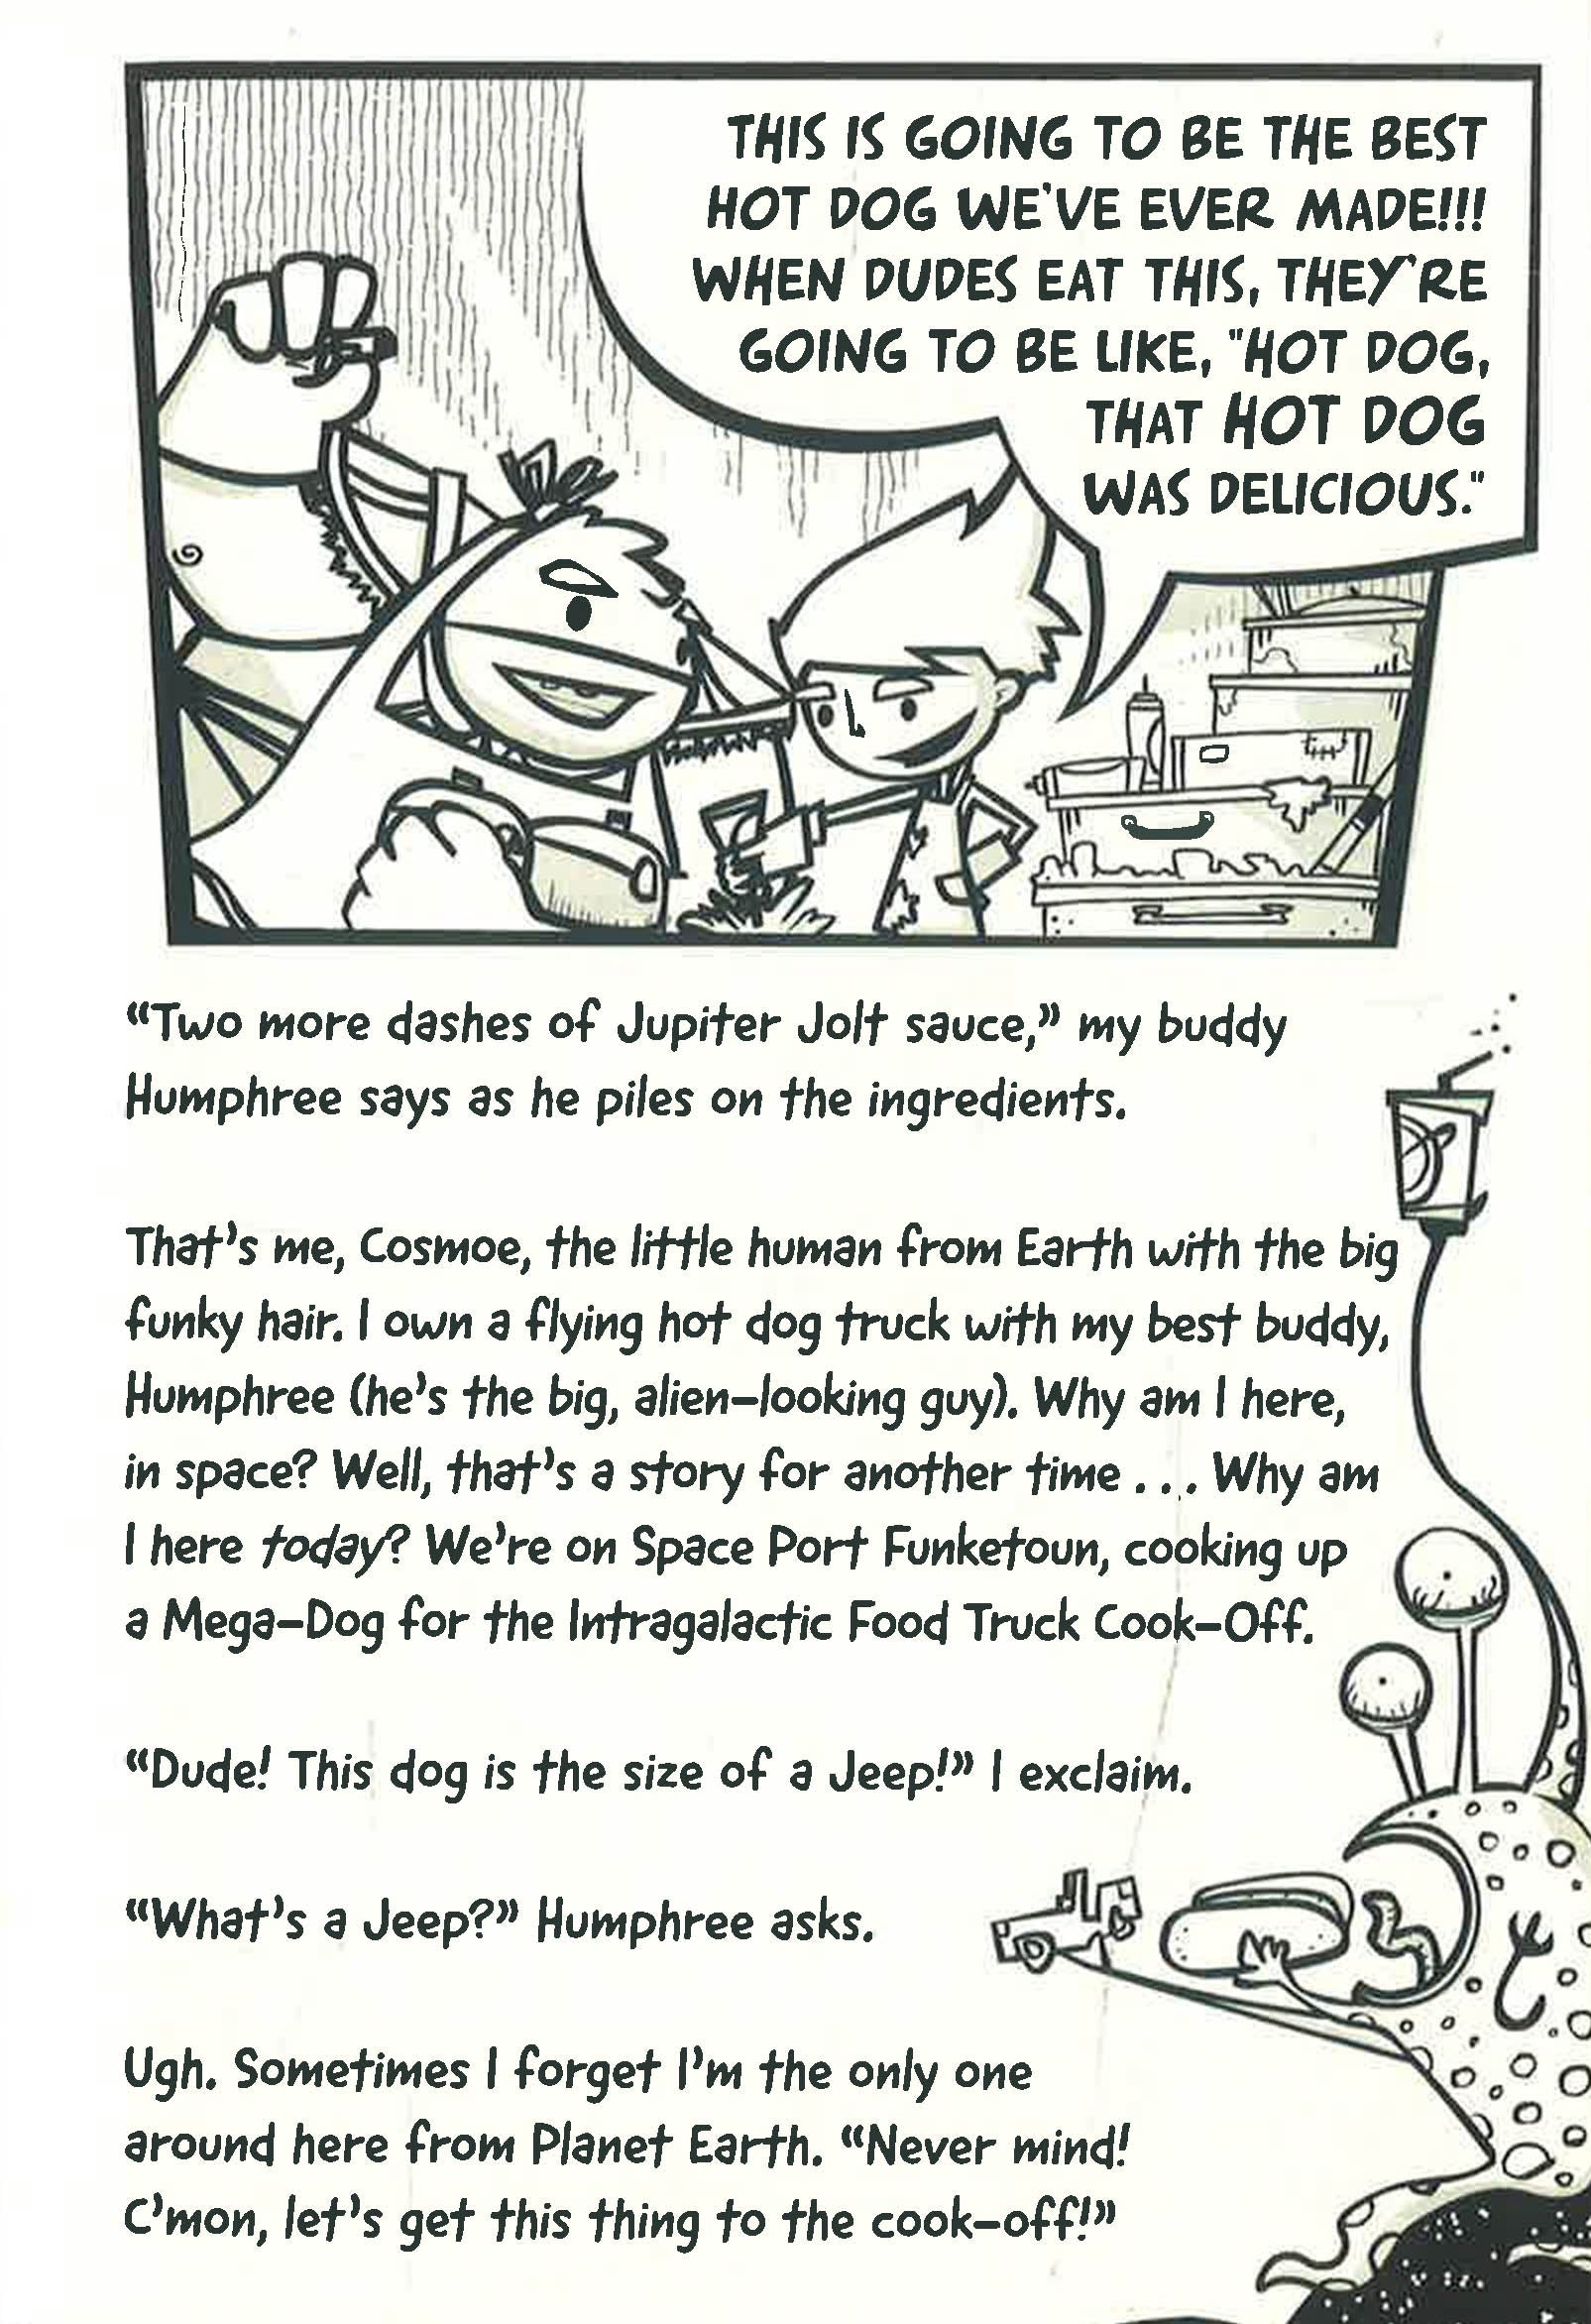 THIS IS GOING TO BE THE BEST
HOT DOG WE'VE EVER MADE!!!
WHEN DUDES EAT THIS, THEY'RE
GOING TO BE LIKE, "HOT DOG,
THAT HOT DOG
WAS DELICIOUS."
“Two more dashes of Jupiter Jolt sauce,” my buddy
Humphree says as he piles on the ingredients.
That’s me, Cosmoe, the little human from Earth with the big
funky hair. I own a flying hot dog truck with my best buddy,
Humphree (he’s the big, alien–looking guy). Why am I here,
in space? Well, that’s a story for another time . . . Why am
I here today? We’re on Space Port Funketoun, cooking up
a Mega–Dog for the Intragalactic Food Truck Cook–Off.
“Dude! This dog is the size of a Jeep!” I exclaim.
“What’s a Jeep?” Humphree asks.
Ugh. Sometimes I forget I’m the only one
around here from Planet Earth. “Never mind!
C’mon, let’s get this thing to the cook–off!”